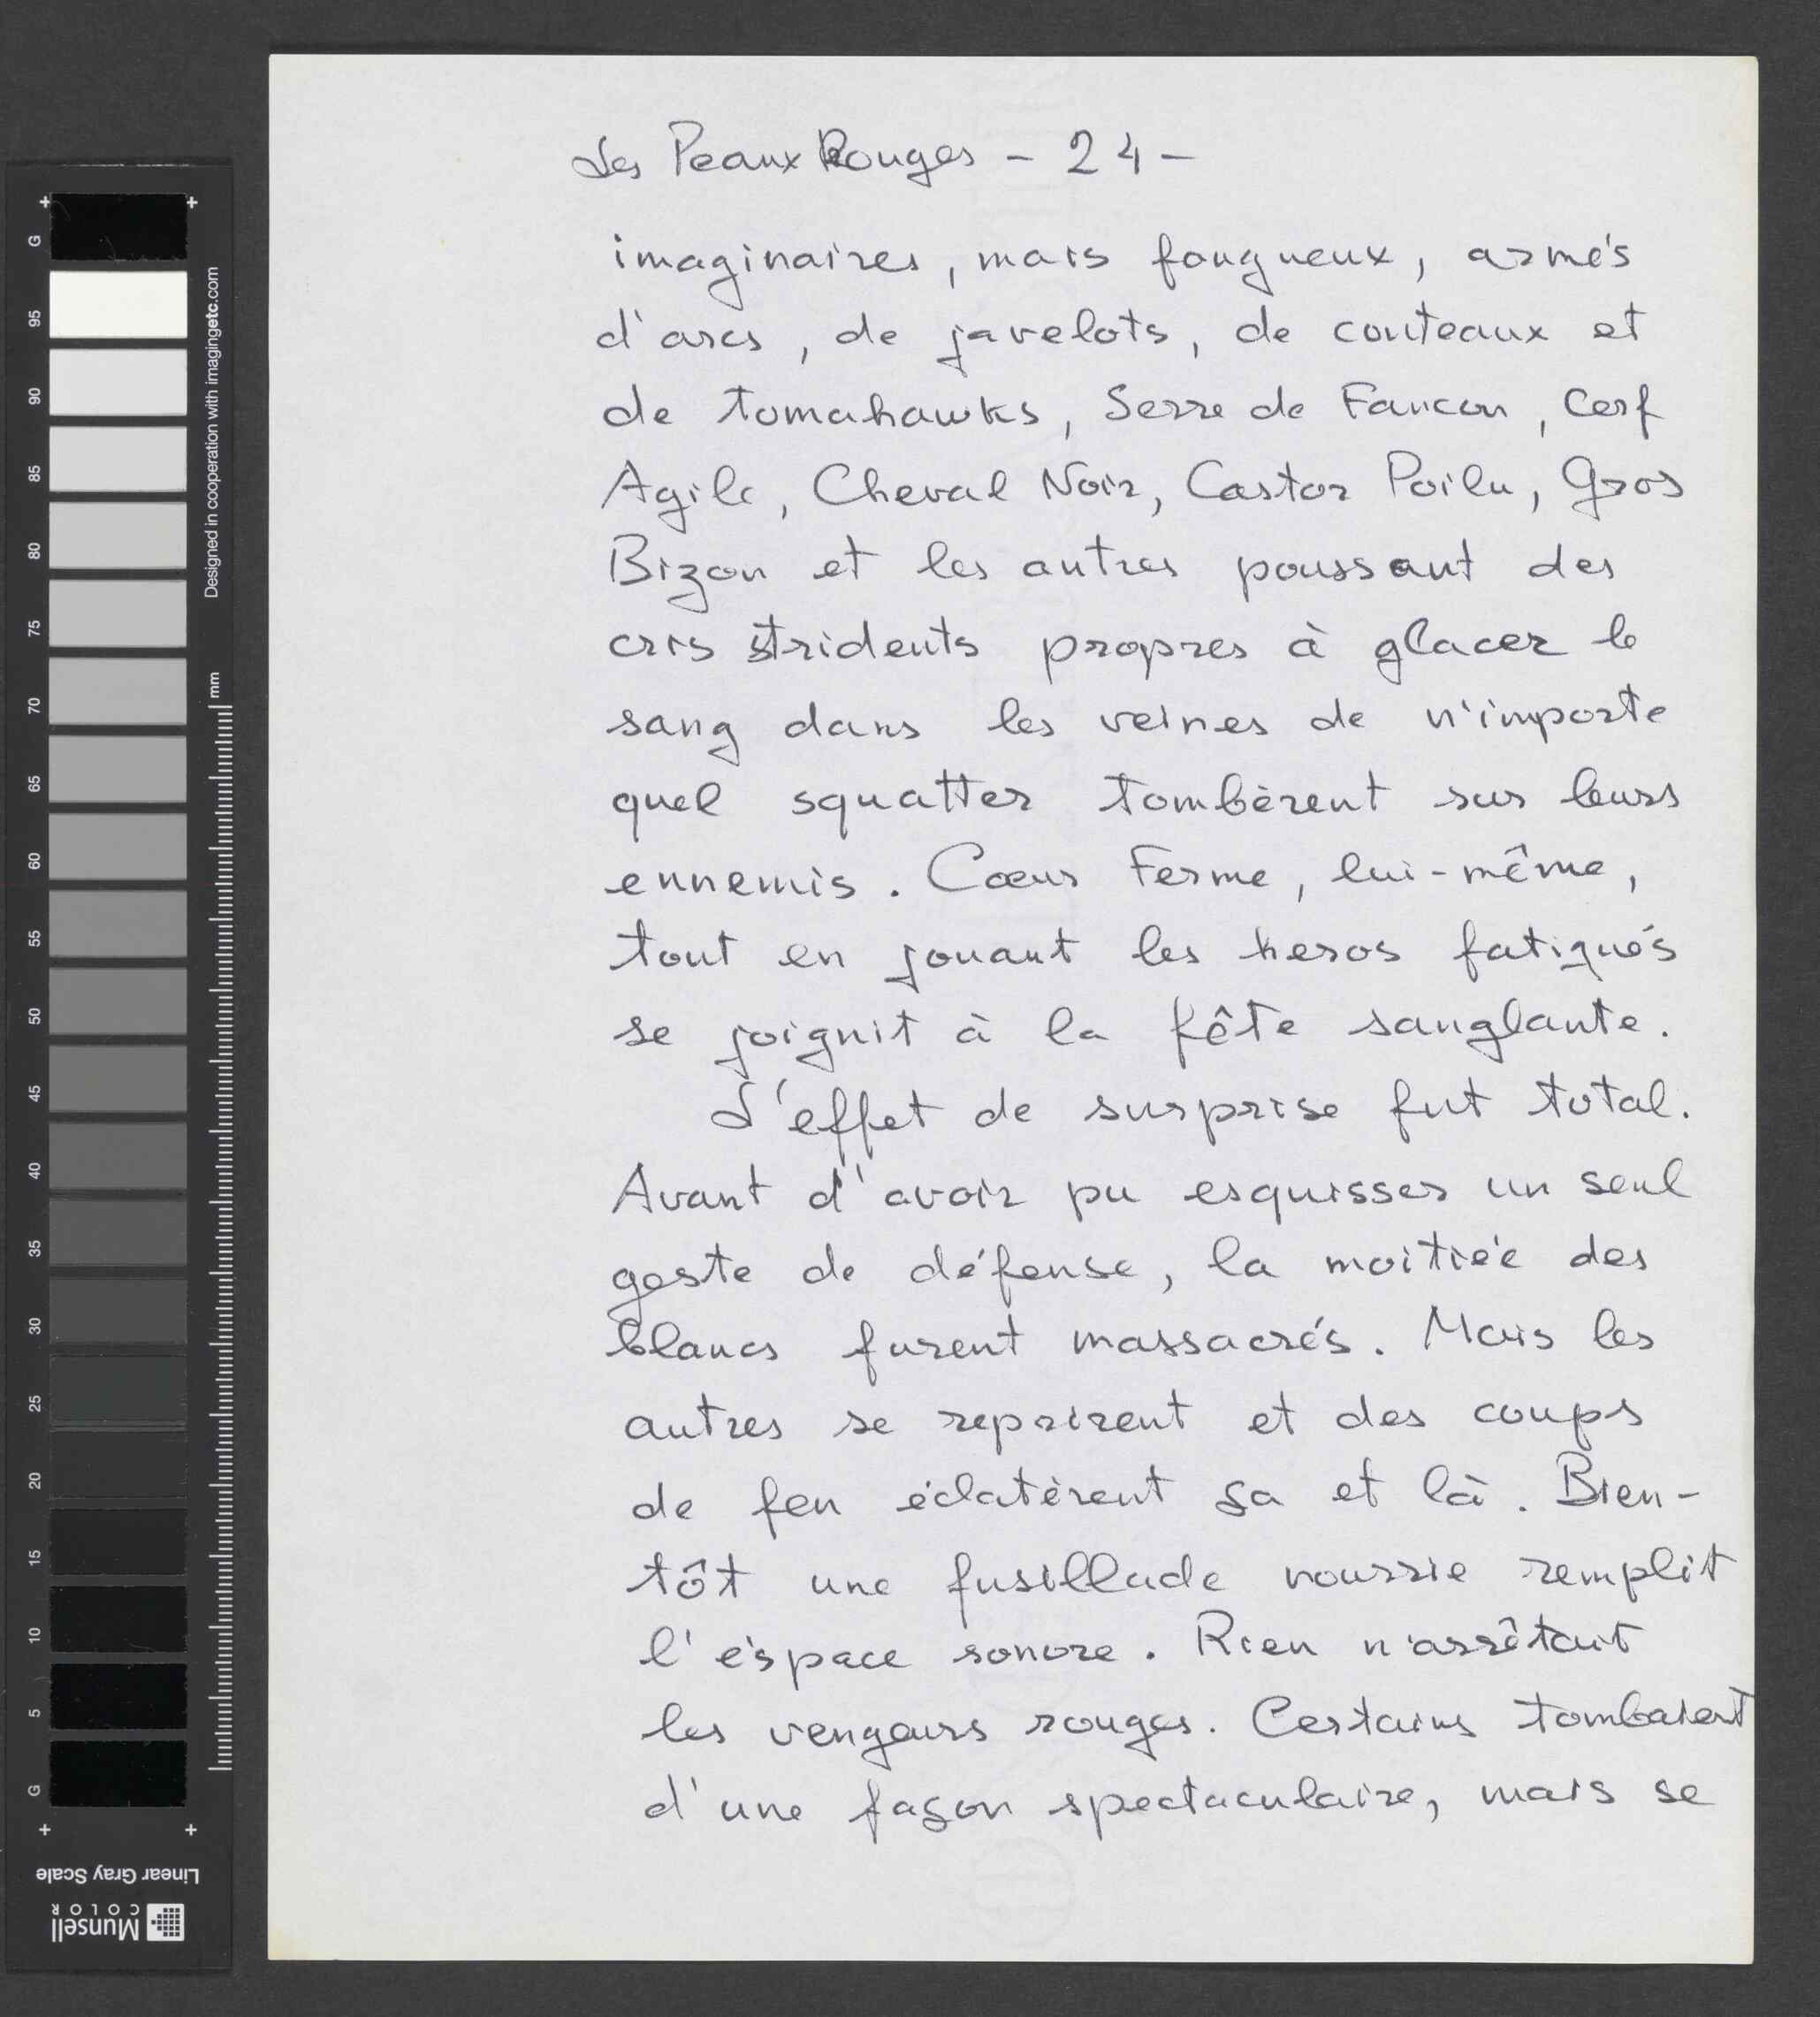 Les Peaux Rouges - 24 -
imaginaires, mais fougueux, armés
d'arcs, de javelots, de couteaux et
de tomahawks, Serre de Faucon, Cerf
Agile, Cheval Noir, Castor Poilu, Gros
Bizon et les autres poussant des
cris stridents propres à glacer le
sang dans les veines de n'importe
quel squatter tombèrent sur leurs
ennemis. Cœur Ferme, lui-même,
tout en jouant les heros fatigués
se joignit à la fête sanglante.
L'effet de surprise fut total.
Avant d'avoir pu esquisser un seul
geste de défense, la moitiée des
blancs furent massacrés. Mais les
autres se reprirent et des coups
de feu éclatèrent ça et là. Bien-
tôt une fusillade nourrie remplit
l'éspace sonore. Rien n'arrêtait
les vengeurs rouges. Certains tombaient
d'une façon spectaculaire, mais se
G
95
90
85
80
75
70
65
60
55
50
45
40
35
30
25
20
15
10
5
G
Designed in cooperation with imagingetc.com
mm
Linear Gray Scale
Munsell
COLOR